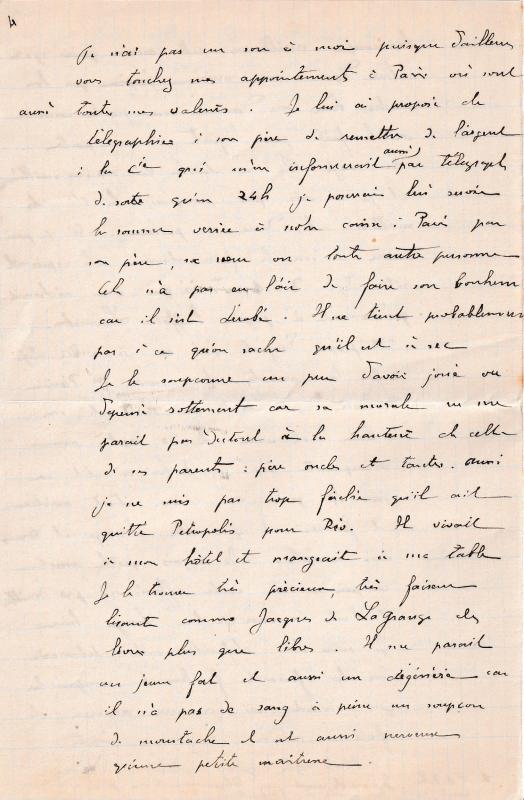 4
Je n'ai pas un sou à moi puisque d'ailleurs
vous touchez mes appointements à Paris où sont
aussi toutes mes valeurs. Je lui ai proposé de
télégraphier à son père de remettre de l'argent
à la Cie qui m'en informerait aussi par télégraph
de sorte qu'en 24h je pourrais lui
la somme versée à notre caisse à Paris par
son père, sa sœur ou toute autre personne
Cela n'a pas eu l'air de faire son bonheur
car il s'est dérobé. Il ne tient probablement
pas à ce qu'on sache qu'il est à sec
Je le soupçonne un peu d'avoir joué ou
dépensé sottement car sa morale ne me
parait pas du tout à la hauteur de celle
de ses parents : père oncles et tantes. aussi
je ne suis pas trop fâché qu'il ait
quitté Petropolis pour Rio. Il vivait
à mon hôtel et mangeait à ma table
Je le trouve très précieux, très faiseur
lisant comme Jacques de LaGrange des
livres plus que libres. Il me parait
un jeune fat et aussi un dégénéré car
il n'a pas de sang à peine un soupçon
de moustache et est aussi nerveux
qu'une petite maitresse.